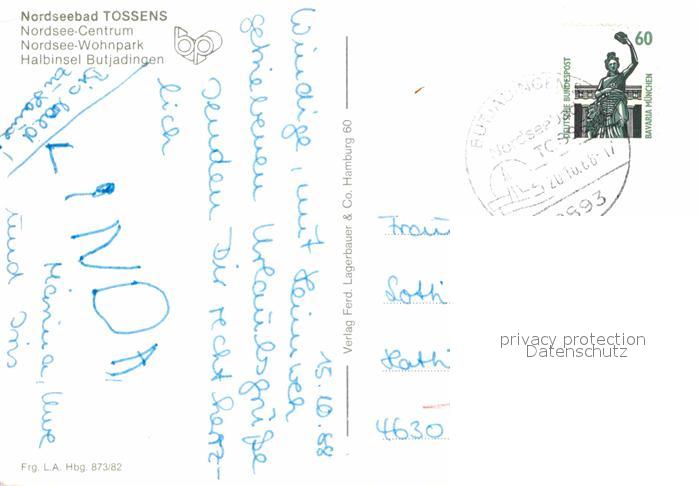 Nordseebad TOSSENS
Nordsee-Centrum
Nordsee-Wohnpark
Halbinsel Butjadingen
15.10.88
Windige, mit Heimweh
geschriebenen Urlaubsgrüße
senden Dir recht herz-
lich
Uwe
und
LINDA
Bis bald
zu Hause!
Frg. L.A. Hbg. 873/82
Verlag Ferd. Lagerbauer & Co. Hamburg 60
60
DEUTSCHE BUNDESPOST
BAVARIA MÜNCHEN
BUTJADINGEN
Nordseebad
TOSSENS
2893
Frau
Lotti
Kathi
4630
privacy protection
Datenschutz